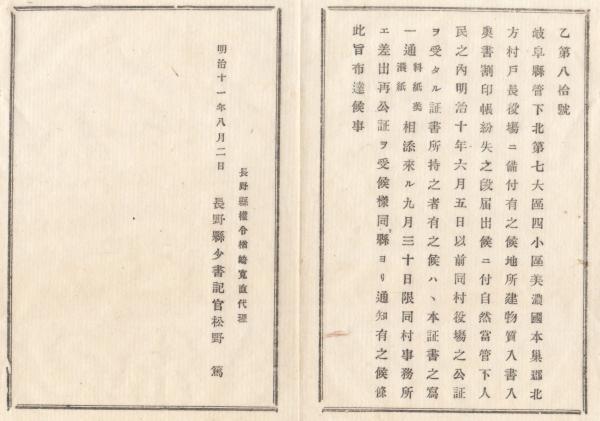 乙第八拾號
岐阜縣管下北第七大區四小區美濃國本巣郡北
方村戸長役塲ニ備付有之候地所建物質入書入
奥書割印帳紛失之段届出候ニ付自然當管下人
民之內明治十年六月五日以前同村役塲之公証
ヲ受タル証書所持之者有之候ハヽ本証書之寫
一通料紙美濃紙相添來ル九月三十日限同村事務所
エ差出再公証ヲ受候樣同縣ヨリ通知有之候條
此旨布達候事
明治十一年八月二日
長野縣權令楢崎寬直代理
長野縣少書記官松野篤